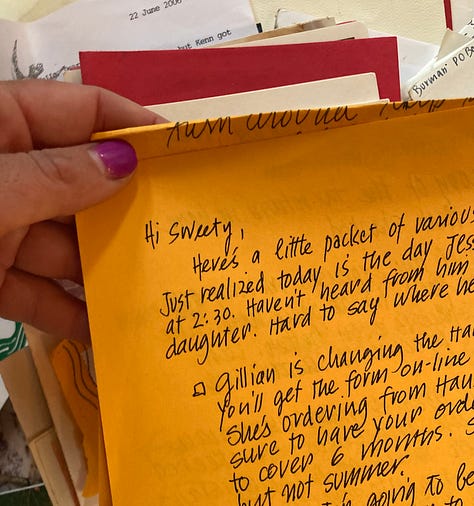 22 June 2006
but Kenn got
Burman PO Bo
turn around
Hi Sweety,
Here's a little packet of various
Just realized today is the day Jess
at 2:30. Haven't heard from him
daughter. Hard to say where he
Gillian is changing the Ha
You'll get the form on-line
She's ordering from Hau
sure to have your orde
to cover 6 months. S
but not summer.
going to be
to